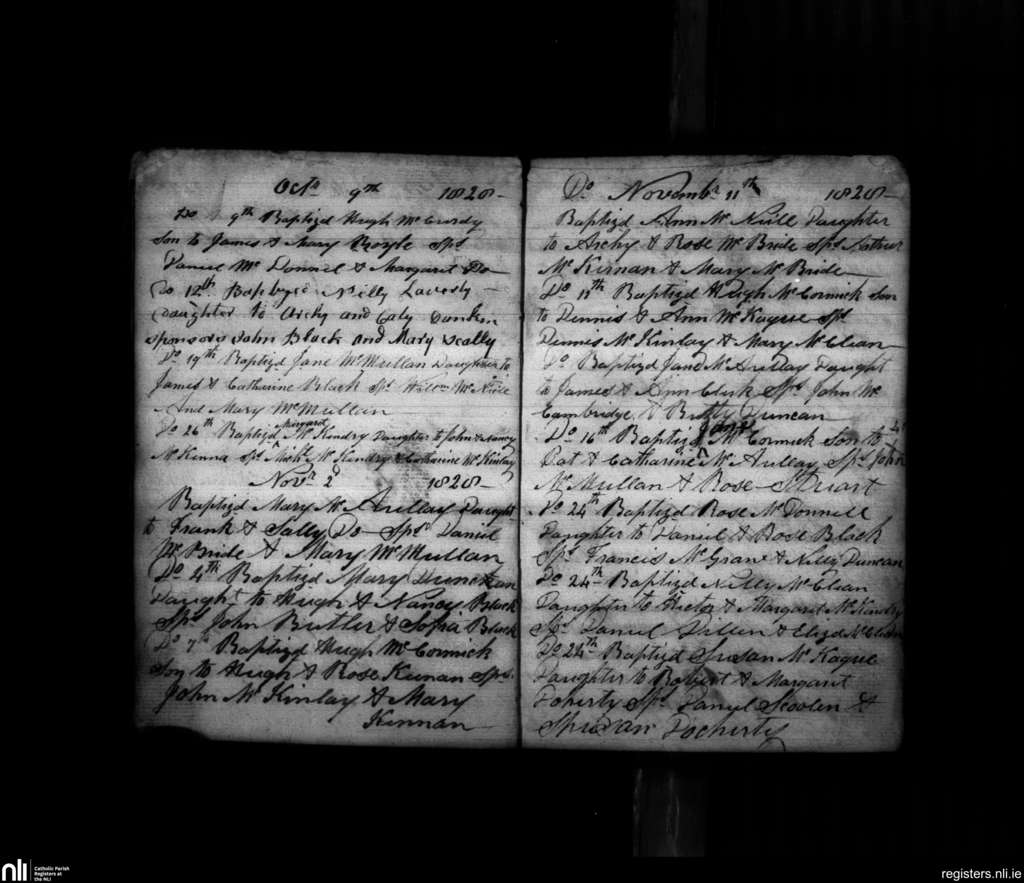 Octr 9th 1828
Do 9th Baptizd Hugh McCurdy
Son to James & Mary Boyle Sps
Daniel McDonnel & Margaret Do
Do 12th Nelly Laverty
Daughter to Archy and Caty
sponsors John Black and Mary Scally
Do 19th Baptizd Jane McMullan Daughter to
James & Catharine Black Sps McNeile
And Mary McMullin
Do 26th Baptizd Margaret McKendry Daughter to John & Nancy
McKenna Sps Michl McKendry & Catharine McKinlay
Novr 2d 1828
Baptizd Mary McAullay Daught
to Frank & Sally Do Sps Daniel
McBride & Mary McMullan
Do 4th Baptizd Mary Duncan
Daught to Hugh & Nancy Black
Sps John Butler & Sofia Black
Do 7th Baptizd Hugh McCormick
Son to Hugh & Rose Kinnan Sps
John McKinlay & Mary
Kinnan
Do Novembr 11th 1828
Baptizd Ann McNeill Daughter
to Archy & Rose McBride Sps Arthur
McKirnan & Mary McBride
Do 11th Baptizd Hugh McCormick Son
to Dennis & Ann McKague Sps
Dinnis McKinlay & Mary McClean
Do Baptizd Jane McAullay Daught
to James & Ann Clerk Sps John Mc
Cambridge & Betty Duncan
Do 16th Baptizd McCormick Son to
Pat & Catharine McAullay Sps John
McMullan & Rose Stuart
Do 24th Baptizd Rose McDonnell
Daughter to Daniel & Rose Black
Sps Francis McGrane & Nilly Duncan
Do 24th Baptizd Nilly McClean
Daughter to Hector & Margaret McKendry
Sps Daniel Dillen & Elizd McClean
Do 24th Baptizd Susan McKague
Daughter to Robert & Margaret
Doherty Sps Danyl Scoolen &
Susan Docherty
nli
Catholic Parish
Registers at
the NLI
registers.nli.ie